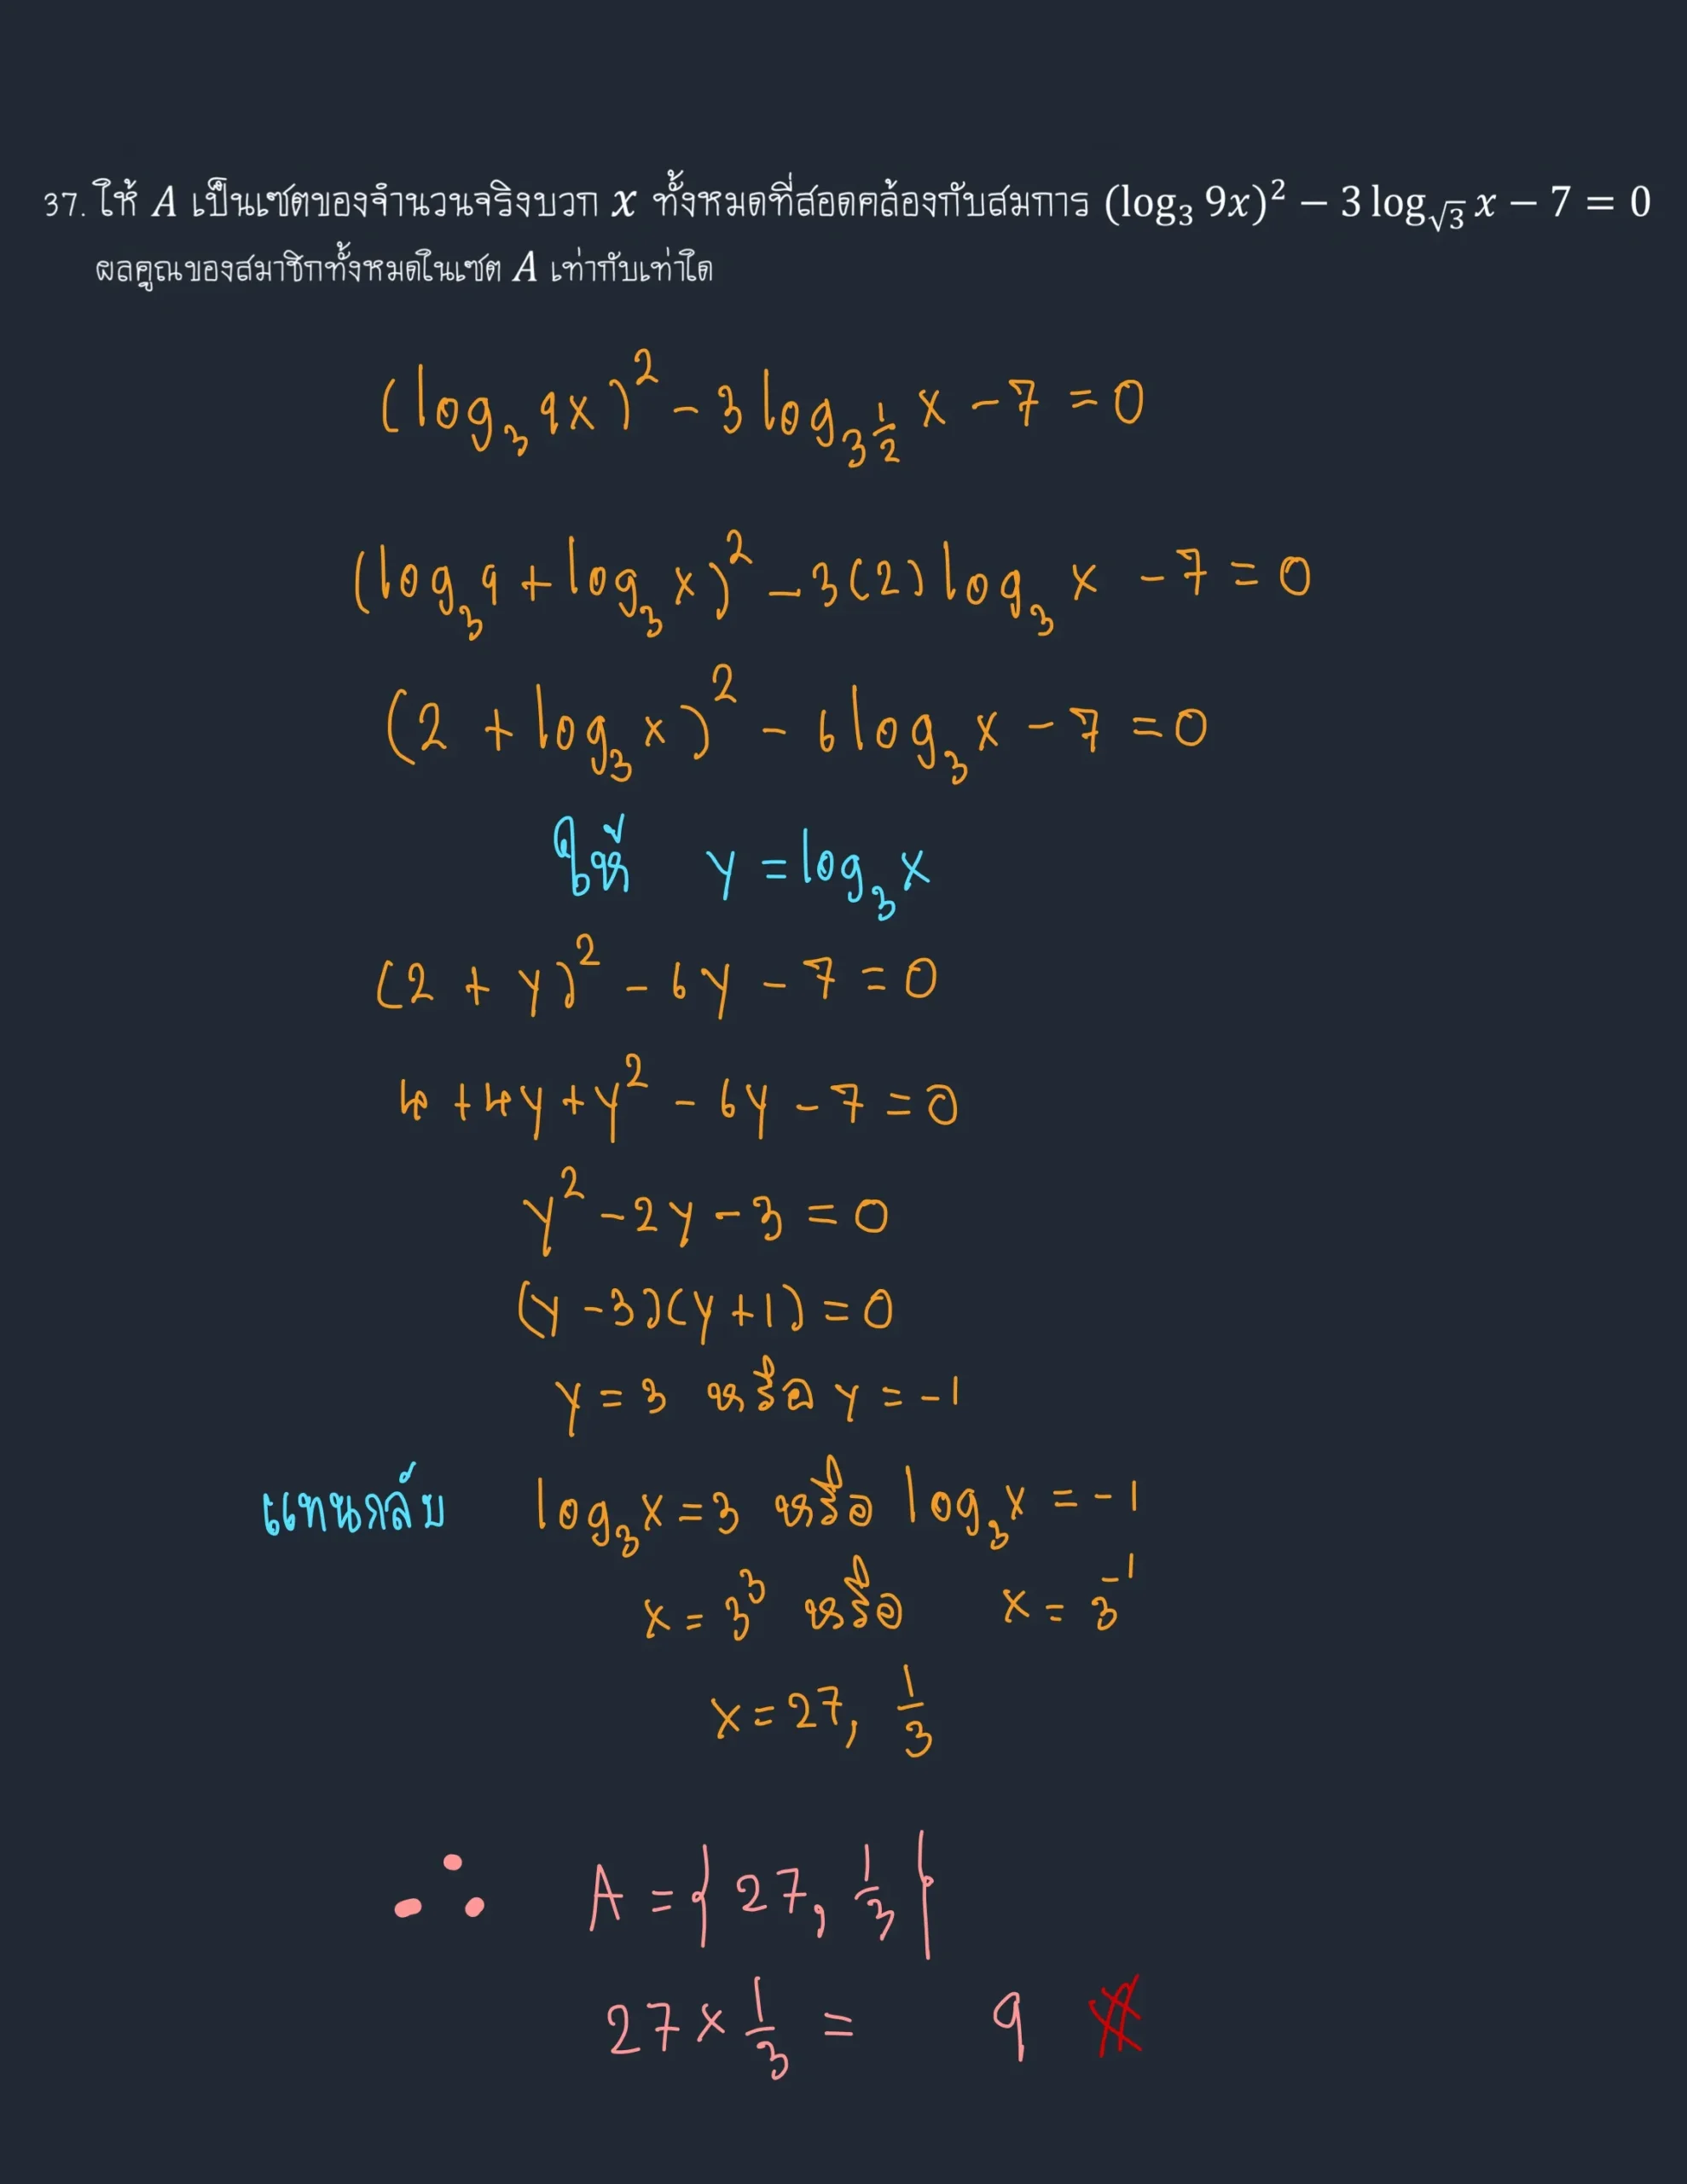 37. ให้ A เป็นเซตของจำนวนจริงบวก x ทั้งหมดที่สอดคล้องกับสมการ (log₃ 9x)² − 3 log_√3 x − 7 = 0
ผลคูณของสมาชิกทั้งหมดในเซต A เท่ากับเท่าใด
(log₃ 9x)² − 3 log_3^(1/2) x − 7 = 0
(log₃ 9 + log₃ x)² − 3(2) log₃ x − 7 = 0
(2 + log₃ x)² − 6 log₃ x − 7 = 0
ให้ y = log₃ x
(2 + y)² − 6y − 7 = 0
4 + 4y + y² − 6y − 7 = 0
y² − 2y − 3 = 0
(y − 3)(y + 1) = 0
y = 3 หรือ y = −1
แทนกลับ log₃ x = 3 หรือ log₃ x = −1
x = 3³ หรือ x = 3⁻¹
x = 27, 1/3
∴ A = {27, 1/3}
27 × 1/3 = 9 #